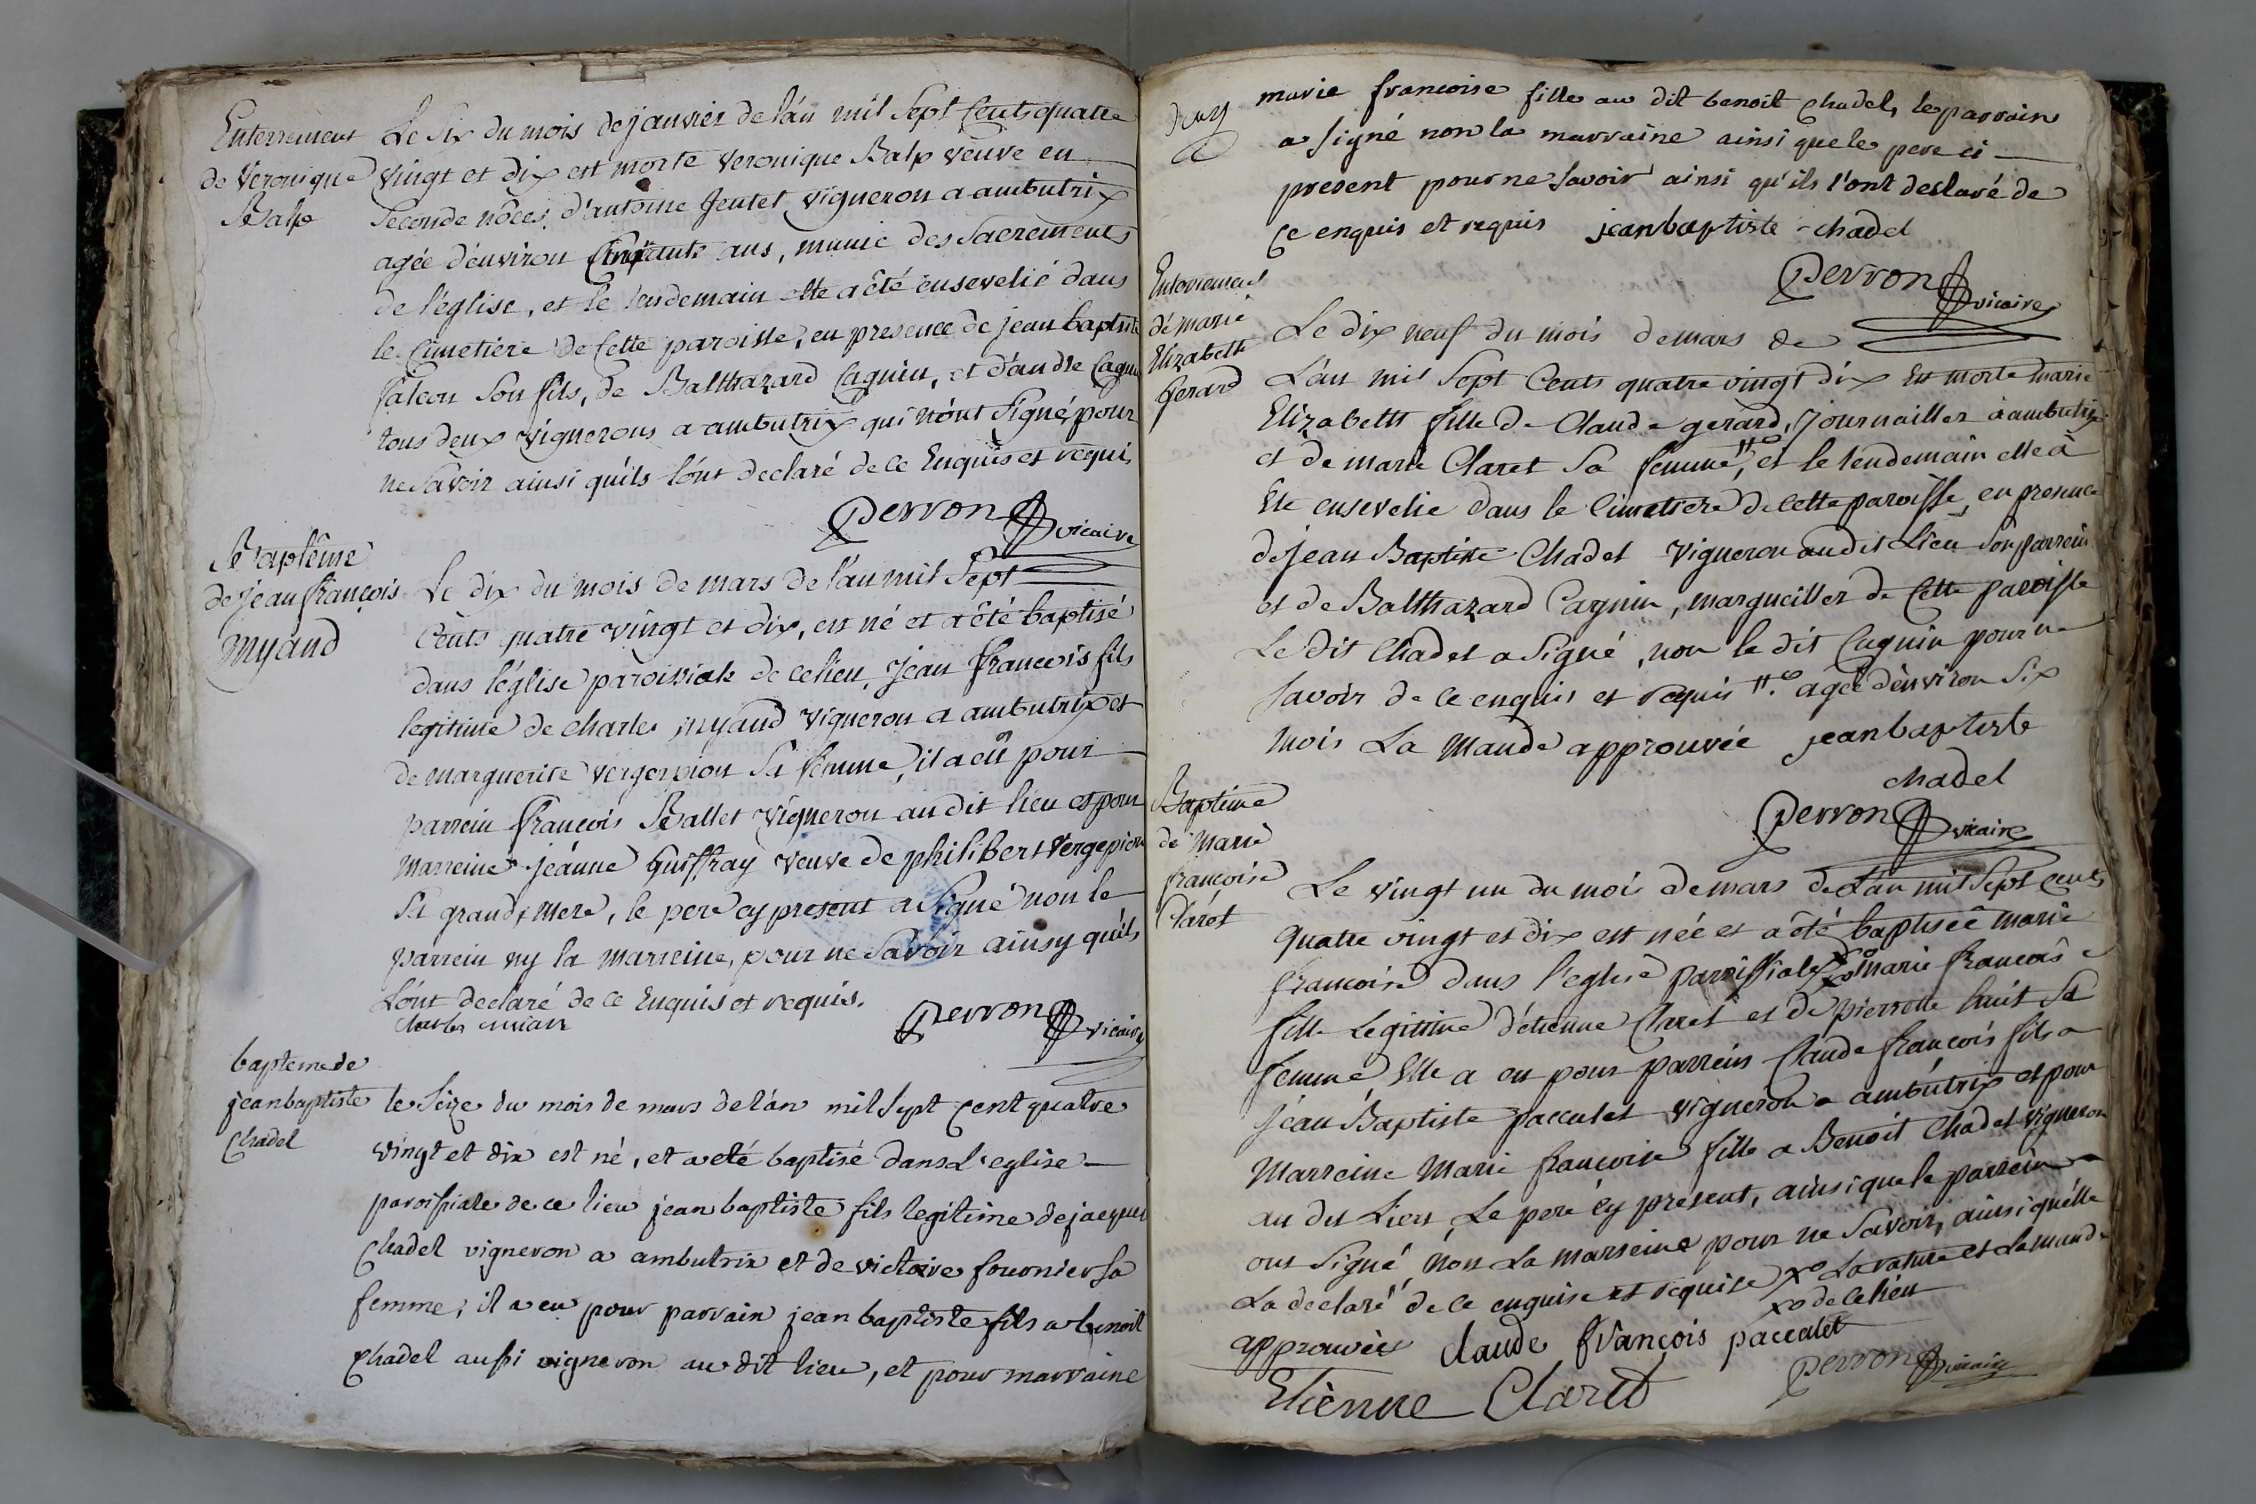 Enterrement
de Veronique
Balp
Le Six du mois de janvier de l'an mil Sept Cents quatre
vingt et dix est morte Veronique Balp veuve en
Seconde nôces d'antoine Jeutet vigneron a ambutrix
agée d'environ Cinquante ans, munie des Sacrements
de l'église, et le lendemain elle a été ensevelie dans
le Cimetiere de Cette paroisse, en presence de jean baptiste
falcon Son fils, de Balthazard Cagnin, et d'andre Cagnin
tous deux vignerons a ambutrix qui n'ont Signé, pour
ne Savoir ainsi qu'ils l'ont declaré de ce Enquis et requis
Perron vicaire
Baptême
de jean françois
myand
Le dix du mois de mars de l'an mil Sept
Cents quatre vingt et dix, est né et a été baptisé
dans l'église paroissiale de ce lieu, Jean françois fils
legitime de charles myand vigneron a ambutrix et
de marguerite vergerpiou Sa femme, il a eû pour
parrein françois Ballet vigneron au dit lieu et pour
marreine jeanne guiffray veuve de philibert Vergepiou
Sa grand, mere, le pere cy present a Signé non le
parrein ny la marreine, pour ne Savoir ainsy qu'ils
L'ont declaré de ce Enquis et requis.
Charles
Perron vicaire
baptême de
jean baptiste
Chadel
le Seize du mois de mars de l'an mil Sept Cent quatre
vingt et dix est né, et a été baptisé dans L'eglise
paroissiale de ce lieu jean baptiste fils legitime de jacques
Chadel vigneron a ambutrix et de victoire fournier sa
femme, il a eu pour parrain jean baptiste fils a benoit
Chadel aussi vigneron au dit lieu, et pour marraine
marie francoise fille au dit benoit Chadel, le parrain
a Signé non la marraine ainsi que le pere ci
present pour ne Savoir ainsi qu'ils l'ont declaré de
Ce enquis et requis jean baptiste chadel
Perron vicaire
Enterrement
de marie
Elizabeth
gerard
Le dix neuf du mois de mars de
L'an mil Sept Cents quatre vingt dix Est morte marie
Elizabeth fille de Claude gerard, journaillier a ambutrix
et de marie Claret Sa femme, et le lendemain elle à
Eté ensevelie dans le Cimetiere de Cette paroisse, en presence
de jean Baptiste Chadel vigneron au dit Lieu Son parrein
et de Balthazard Cagnin, margueiller de Cette paroisse
Le dit Chadel a Signé, non le dit Cagnin pour ne
Savoir de ce enquis et requis agée d'environ Six
mois La Mande approuvée jean baptiste
chadel
Perron vicaire
Baptême
de Marie
françoise
Claret
Le vingt un du mois de mars de L'an mil Sept Cents
quatre vingt et dix est née et a été baptisée marie
francoise dans l'eglise paroissiale marie francoise
fille Legitime d'étienne Claret et de pierrette huit Sa
femme Elle a eu pour parrein Claude françois fils a
jean Baptiste paccalet vigneron a ambutrix et pour
Marreine Marie francoise fille a Benoit Chadel vigneron
au dit Lieu, Le pere cy present, ainsi que le parrein
ont Signé non La marreine pour ne Savoir, ainsi qu'elle
La declaré de ce enquise et requise La rature et La mande
de ce lieu
approuvées claude françois paccalet
Perron vicaire
Etienne Claret